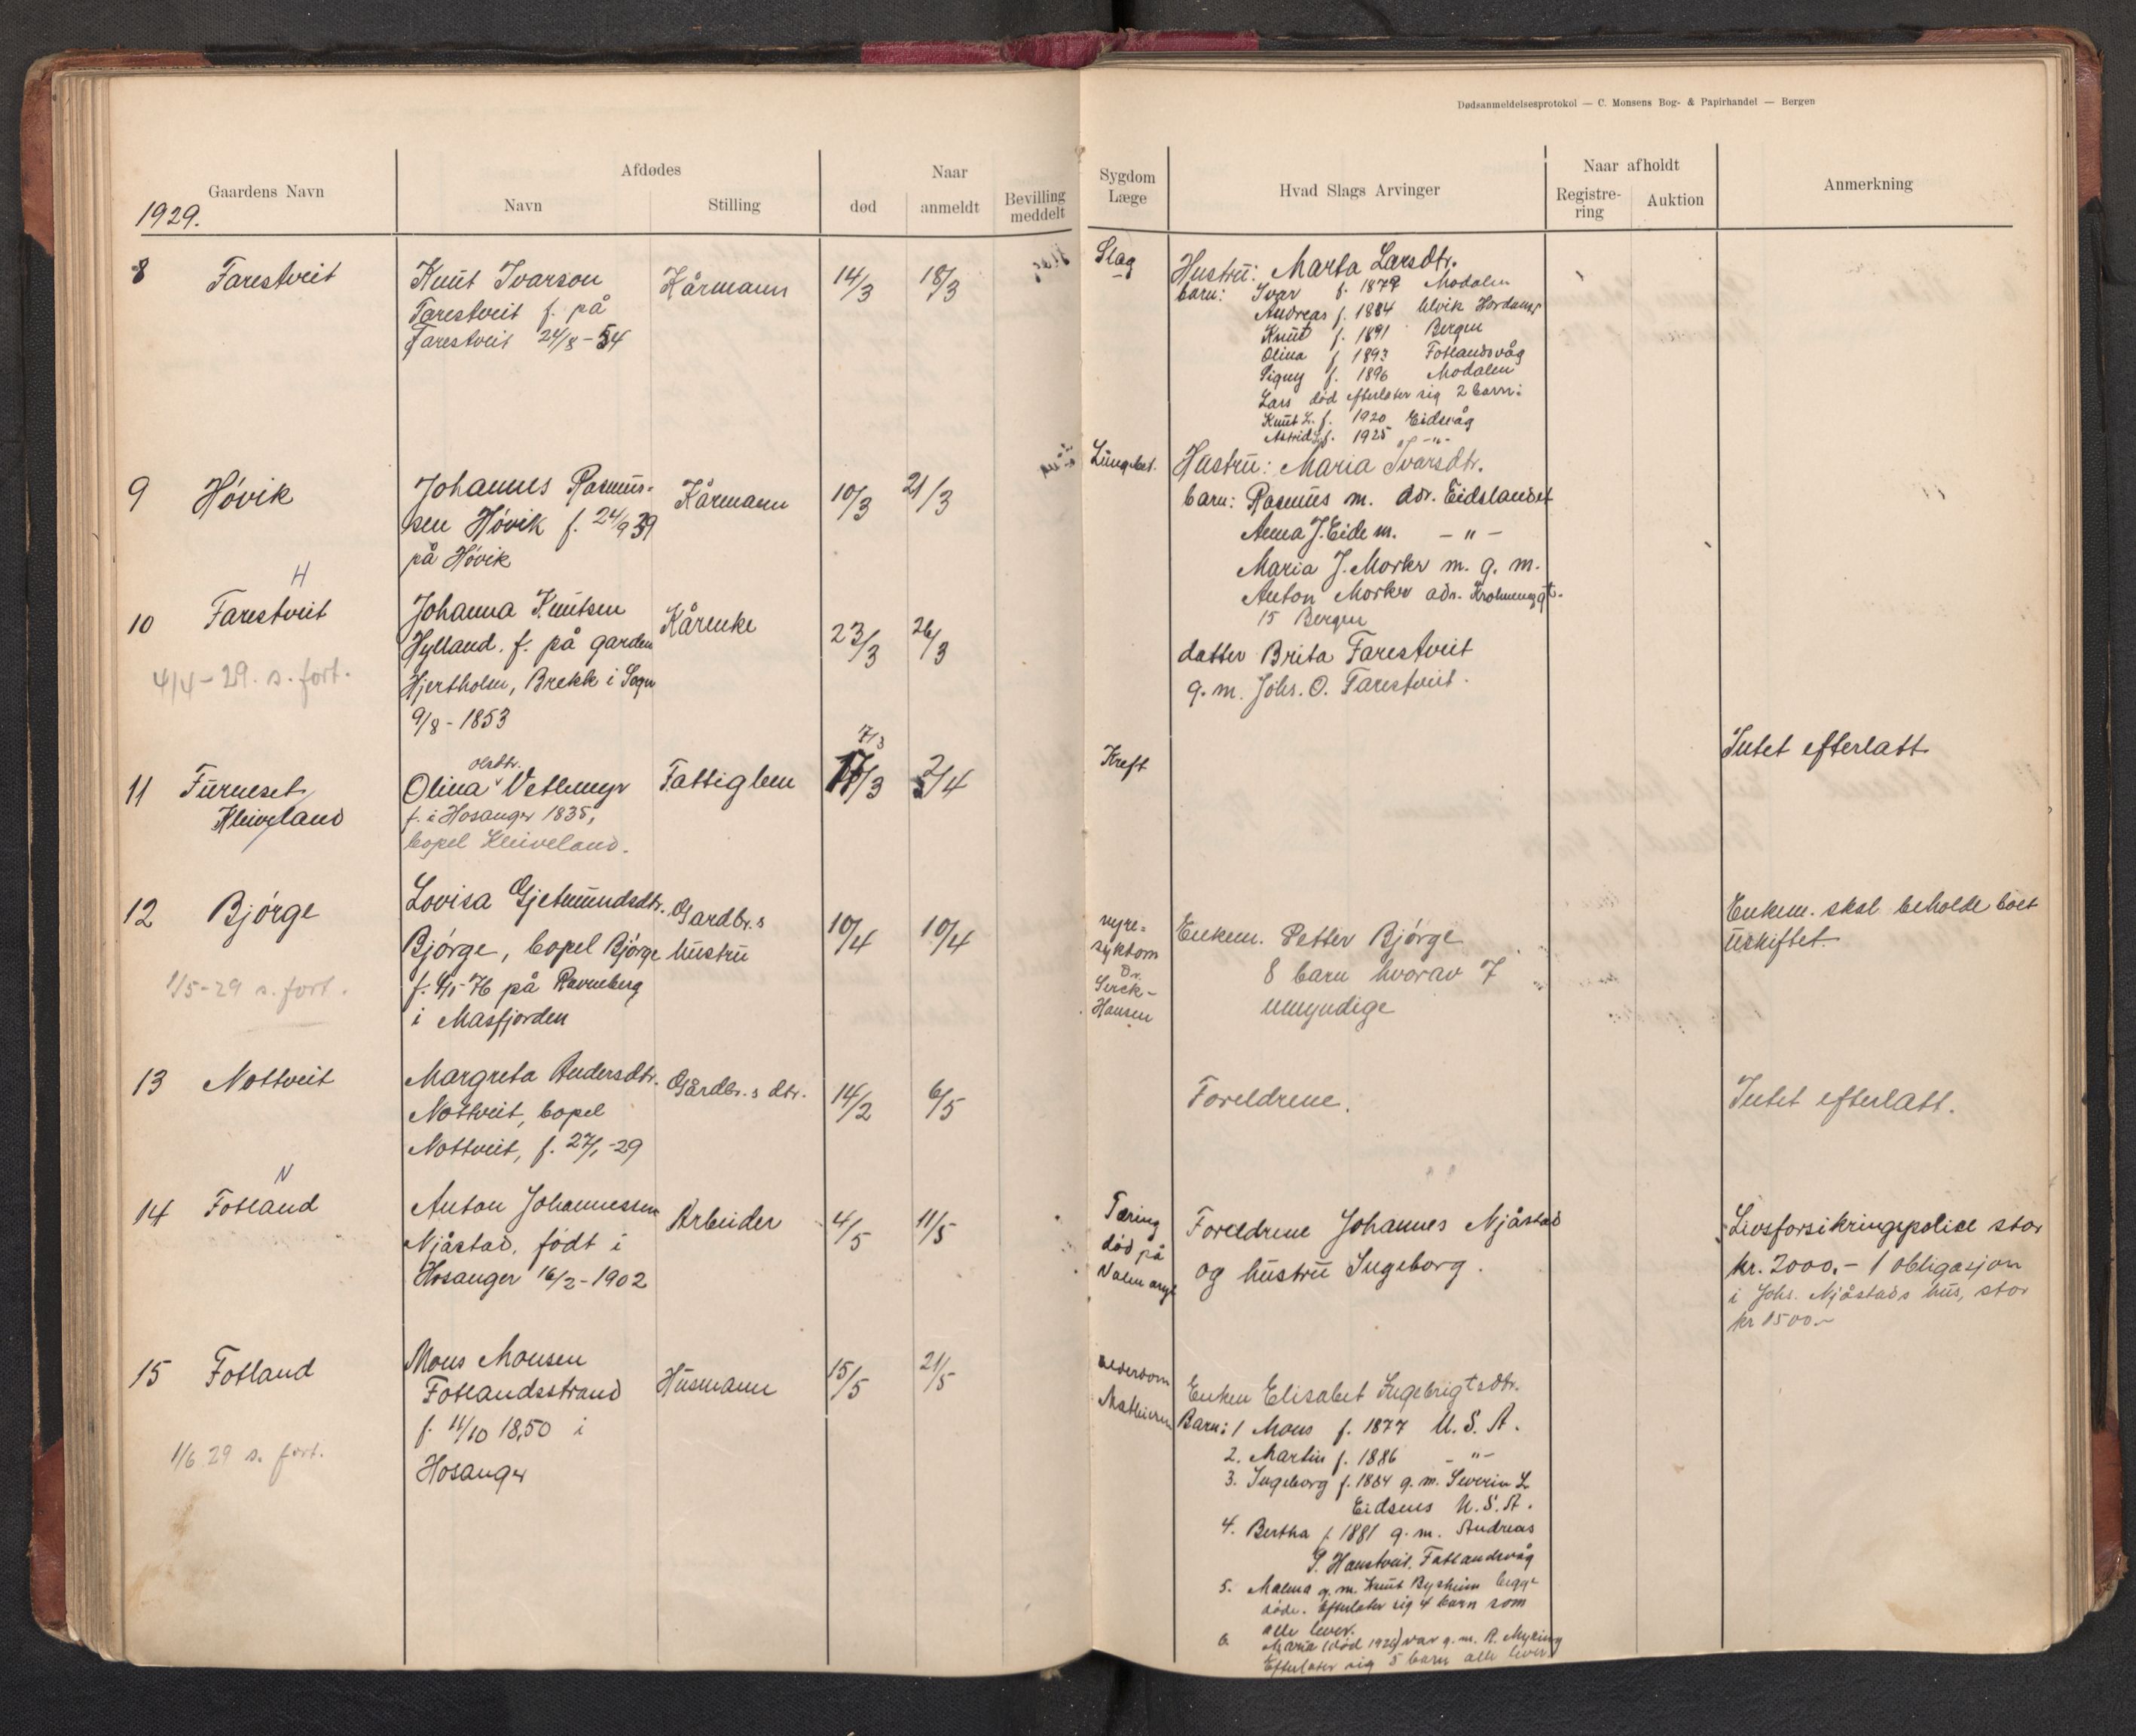 Dødsanmeldelsesprotokol — C. Monsens Bog- & Papirhandel — Bergen
Gaardens Navn
Afdødes
Navn
Stilling
Naar
død
anmeldt
Bevilling
meddelt
Sygdom
Læge
Hvad Slags Arvinger
Naar afholdt
Registre-
ring
Auktion
Anmerkning
1929.
8 Farestveit
Knut Ivarson
Farestveit f. på
Farestveit 24/8-54
Kårmann
14/3 18/3
Slag
Hustru: Marta Larsdtr.
barn: Ivar f. 1879 Modalen
Andreas f. 1884 Ulvik
Knut f. 1891 Bergen
Olina f 1893 Fotlandsvåg
Signy f. 1896 Modalen
Lars død efterlater sig 2 barn:
Knut L. f. 1920 Eidsvåg
Astrid L. f. 1925 -"-
9 Høvik
Johannes Rasmus-
sen Høvik f. 24/9 39
på Høvik
Kårmann
10/3 21/3
Lungebet.
Hustru: Maria Ivarsdtr.
barn: Rasmus m. adr. Eidslandet
Anna J. Eide m. -"-
Maria J. Morken m. g. m.
Anton Morken adr.
15 Bergen
H
10 Farestveit
4/4-29. s. fort.
Johanna Knutsen
Hylland. f. på garden
Hjertholm, Brekk i Sogn
9/8-1853
Kårenke
23/3 26/3
datter Brita Farestveit
g. m. Johs. O. Farestveit.
11 Furneset
Kleiveland
olsdtr.
Olina Vetlemyr
f. i Hosanger 1835,
bopel Kleiveland.
Fattiglem
7/3
17/3 2/4
Kreft
Intet efterlatt
12 Bjørge
1/5-29 s. fort.
Lovisa Gjetmundsdtr.
Bjørge, bopel Bjørge
f. 4/5-76 på Ravneberg
i Masfjorden
Gardbr.s
hustru
10/4 10/4
nyre-
sykdom
Dr.
Serck-
Hansen
Enkem. Petter Bjørge
8 barn hvorav 7
umyndige
Enkem. skal beholde boet
uskiftet
13 Nottveit
Margreta Andersdtr.
Nottveit, bopel
Nottveit, f. 27/1-29
Gårdbr.s dtr.
14/2 6/5
Foreldrene.
Intet efterlatt.
N
14 Fotland
Anton Johannessen
Njåstad, født i
Hosanger 16/2-1902
Arbeider
4/5 11/5
Tæring
død på
Foreldrene Johannes Njåstad
og hustru Ingeborg.
Livsforsikringspolise stor
kr. 2000.- 1 obligasjon
i Johs. Njåstads hus, stor
kr 1500.-
15 Fotland
1/6 29 s. fort.
Mons Monsen
Fotlandsstrand
f. 11/10 1850 i
Hosanger
Husmann
15/5 21/5
alderdom
Mathiesen
Enken Elisabet Ingebrigtsdtr.
Barn: 1 Mons f. 1877 U.S.A.
2. Martin f. 1886 -"-
3. Ingeborg f. 1884 g. m. Severin L
Eidsnes U.S.A.
4. Bertha f 1881 g. m. Andreas
Fotlandsvåg
5. Malena g. m. Knut Bysheim begge
døde. Efterlater sig 4 barn som
alle lever.
6. Maria (død 1926) var g. m. A. Myking
Efterlater sig 5 barn alle lever